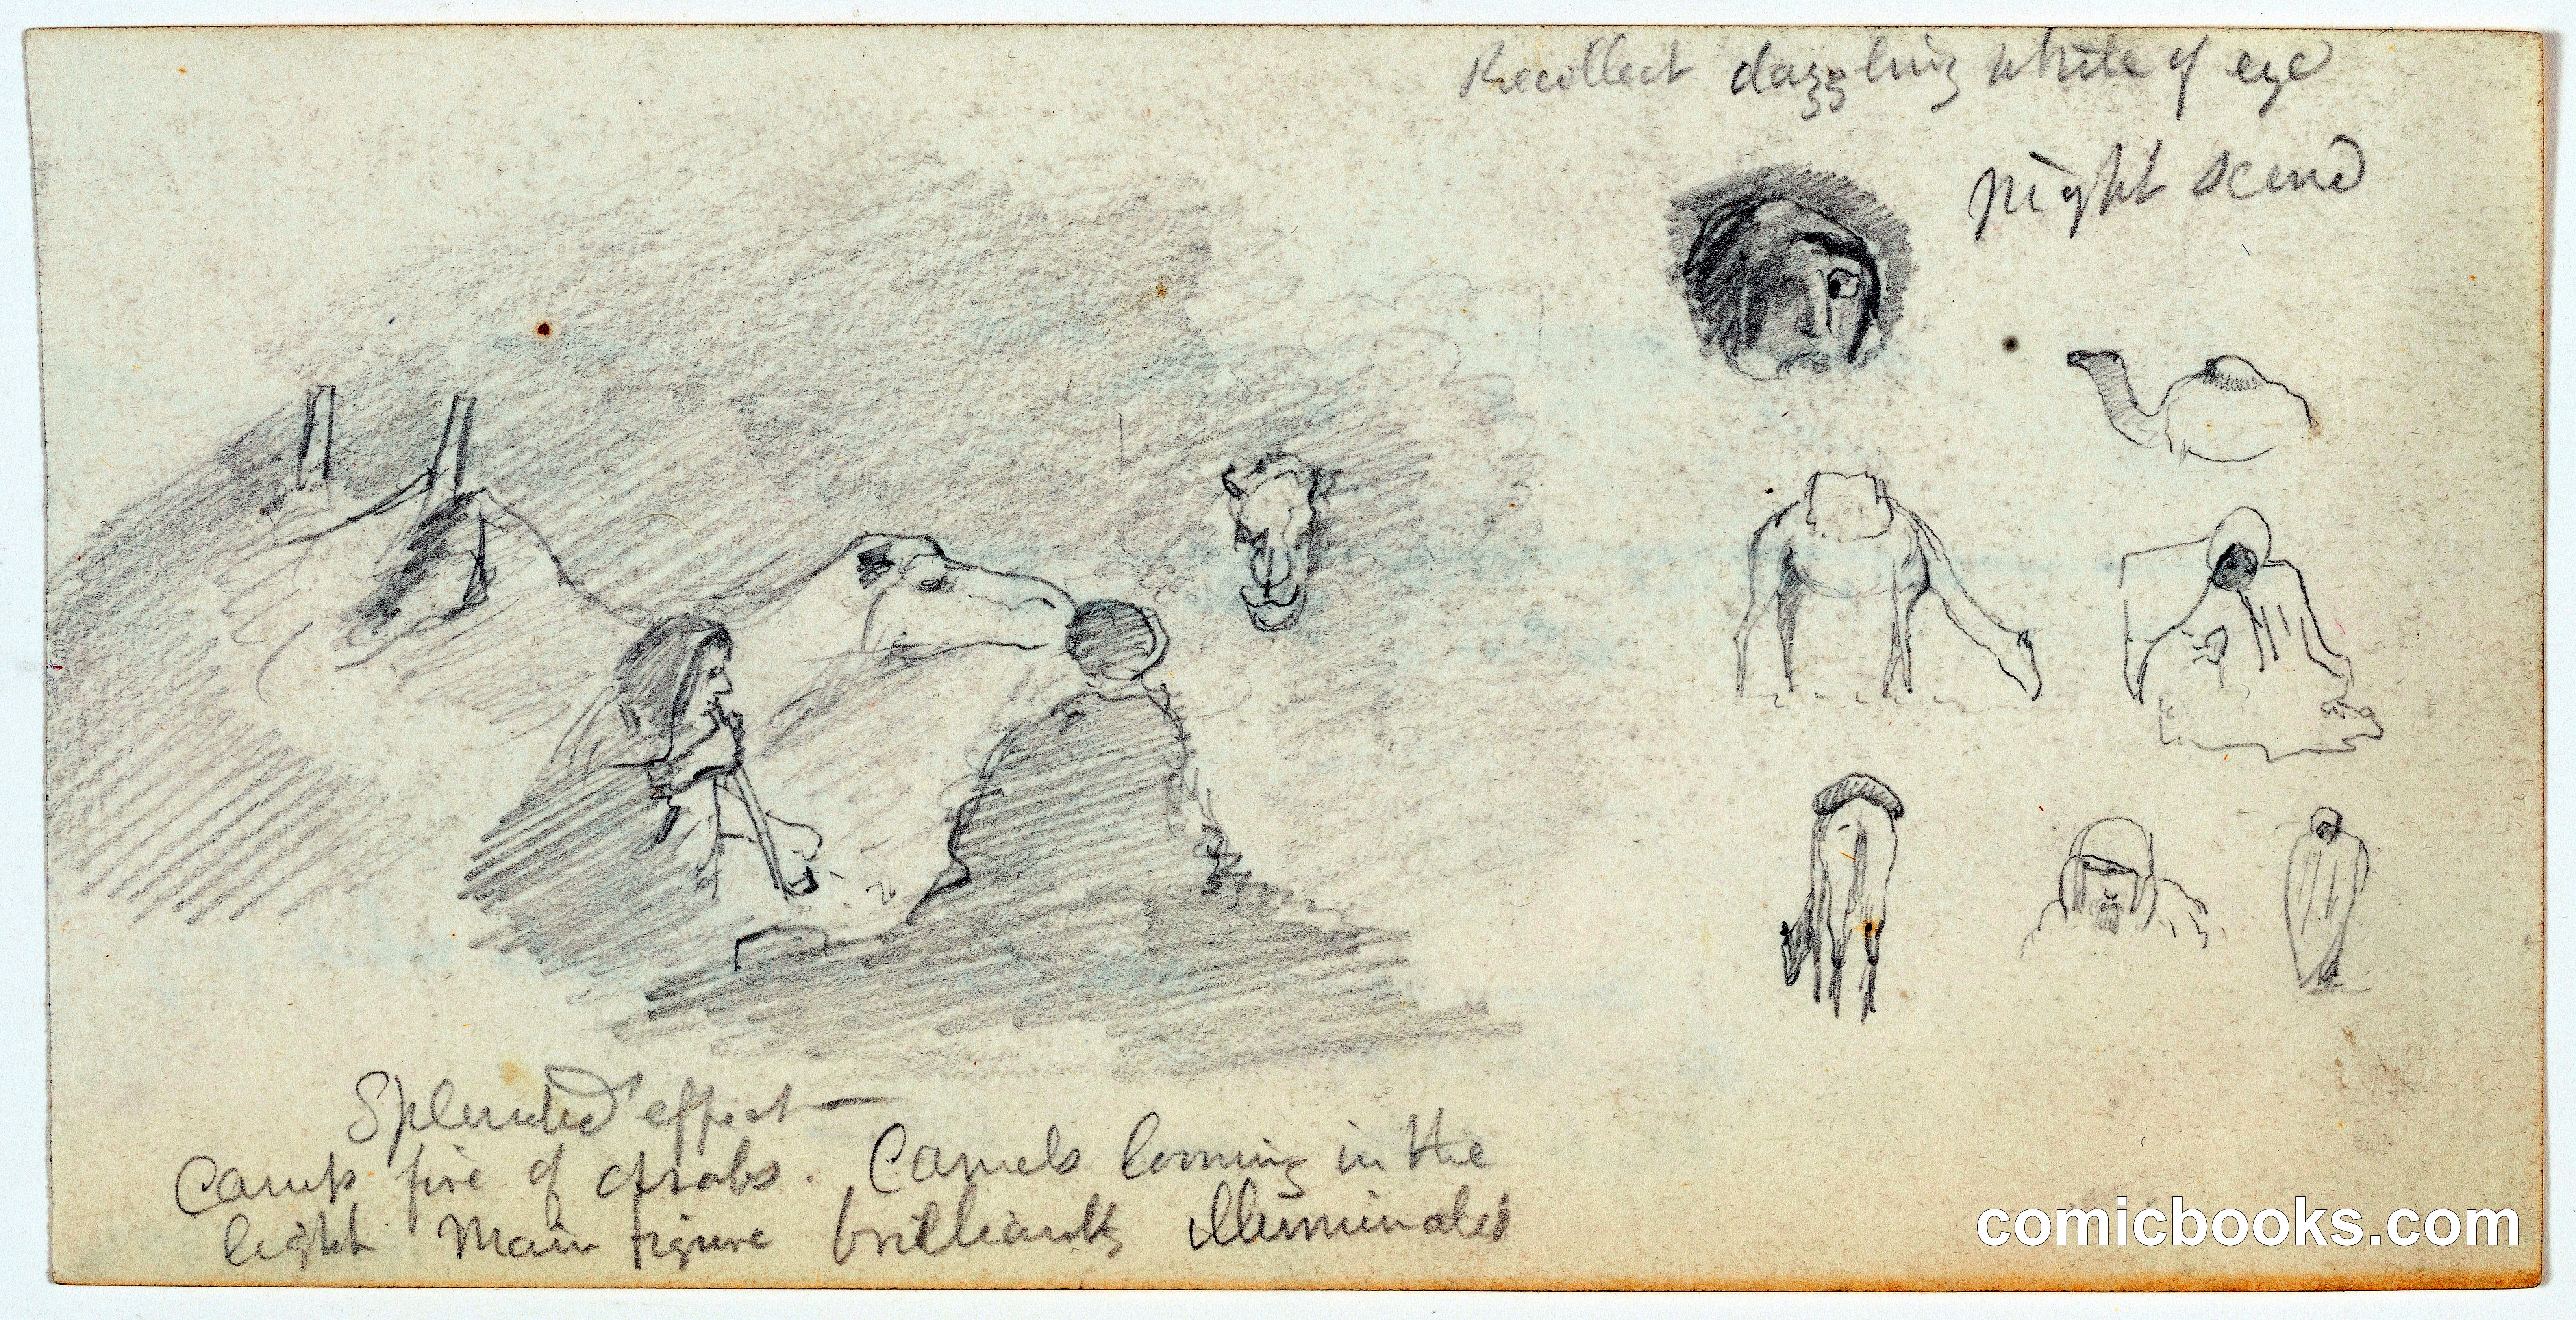 Recollect dazzling white of eye
Night scene
Splendid effect —
Camp fire of Arabs. Camels looming in the
light Main figure brilliantly illuminated
comicbooks.com